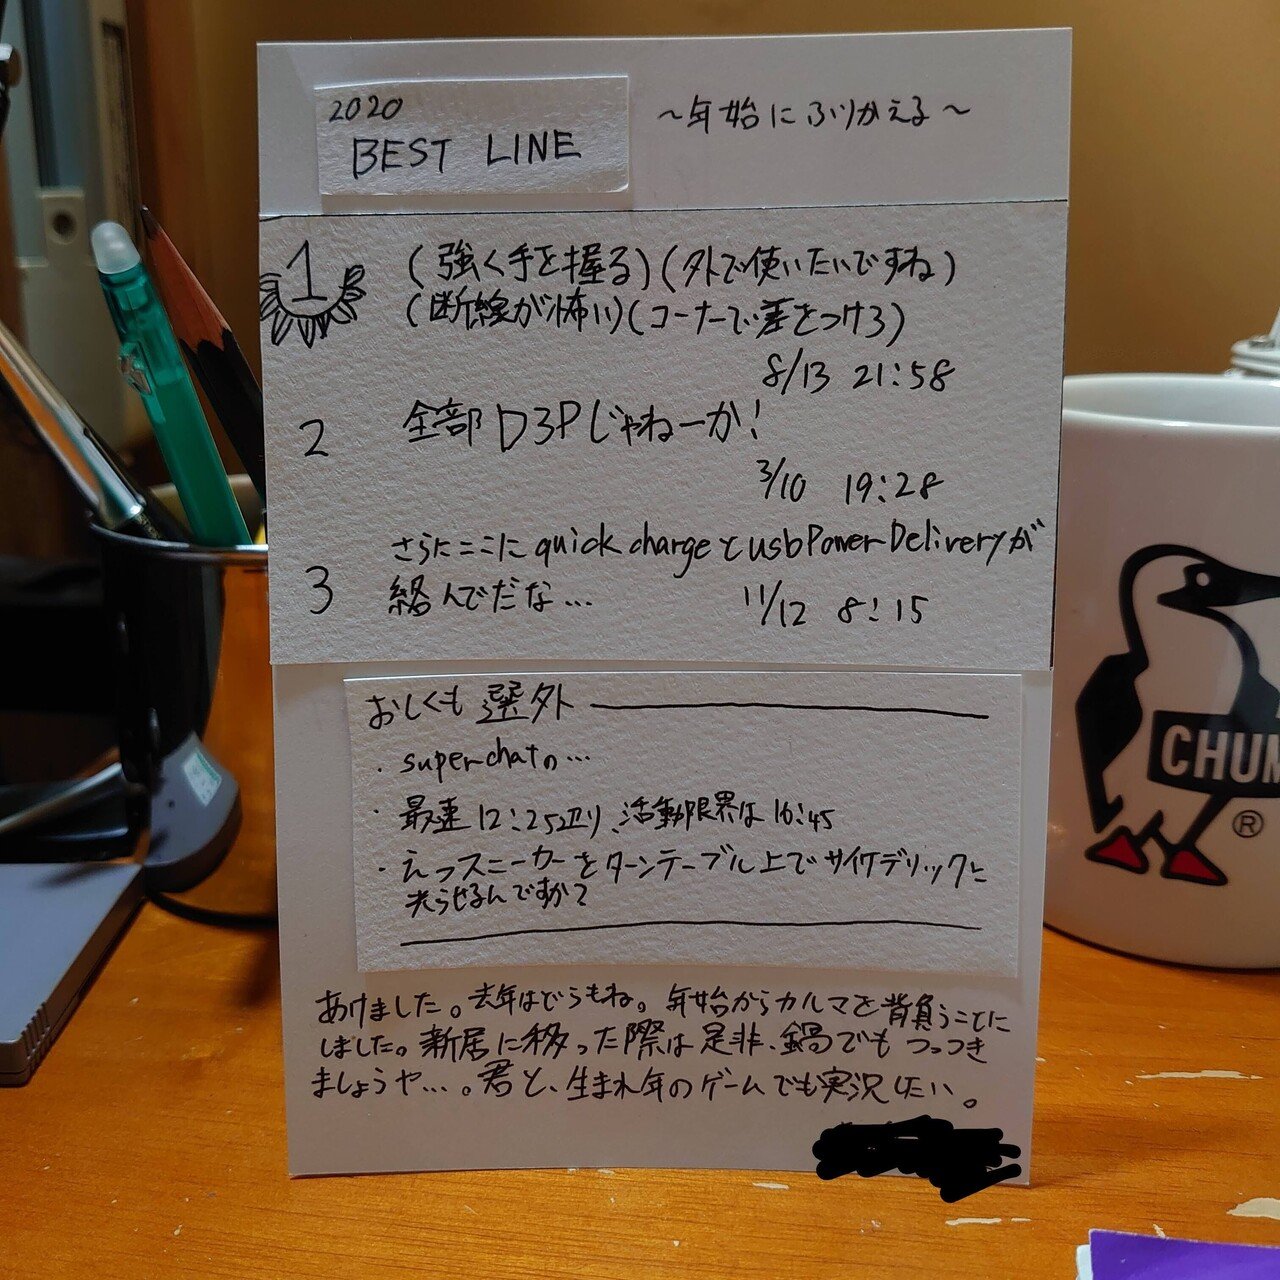 2020
BEST LINE
～年始にふりかえる～
1
(強く手を握る)(外で使いたいですね)
(断線が怖い)(コーナーで差をつけろ)
8/13 21:58
2
全部D3Pじゃねーか!
3/10 19:28
3
さらにここにquick chargeとusb Power Deliveryが
絡んでだな…
11/12 8:15
おしくも選外
・superchatの…
・最速12:25辺り、活動限界は16:45
・えっスニーカーをターンテーブル上でサイケデリックに
光らせるんですか?
あけました。去年はどうもね。年始からカルマを背負うことに
しました。新居に移った際は是非、鍋でもつっつき
ましょうや…。君と、生まれ年のゲームでも実況したい。
CHUM
®